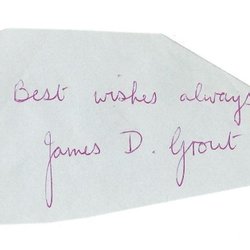 Best wishes always
James D. Grout